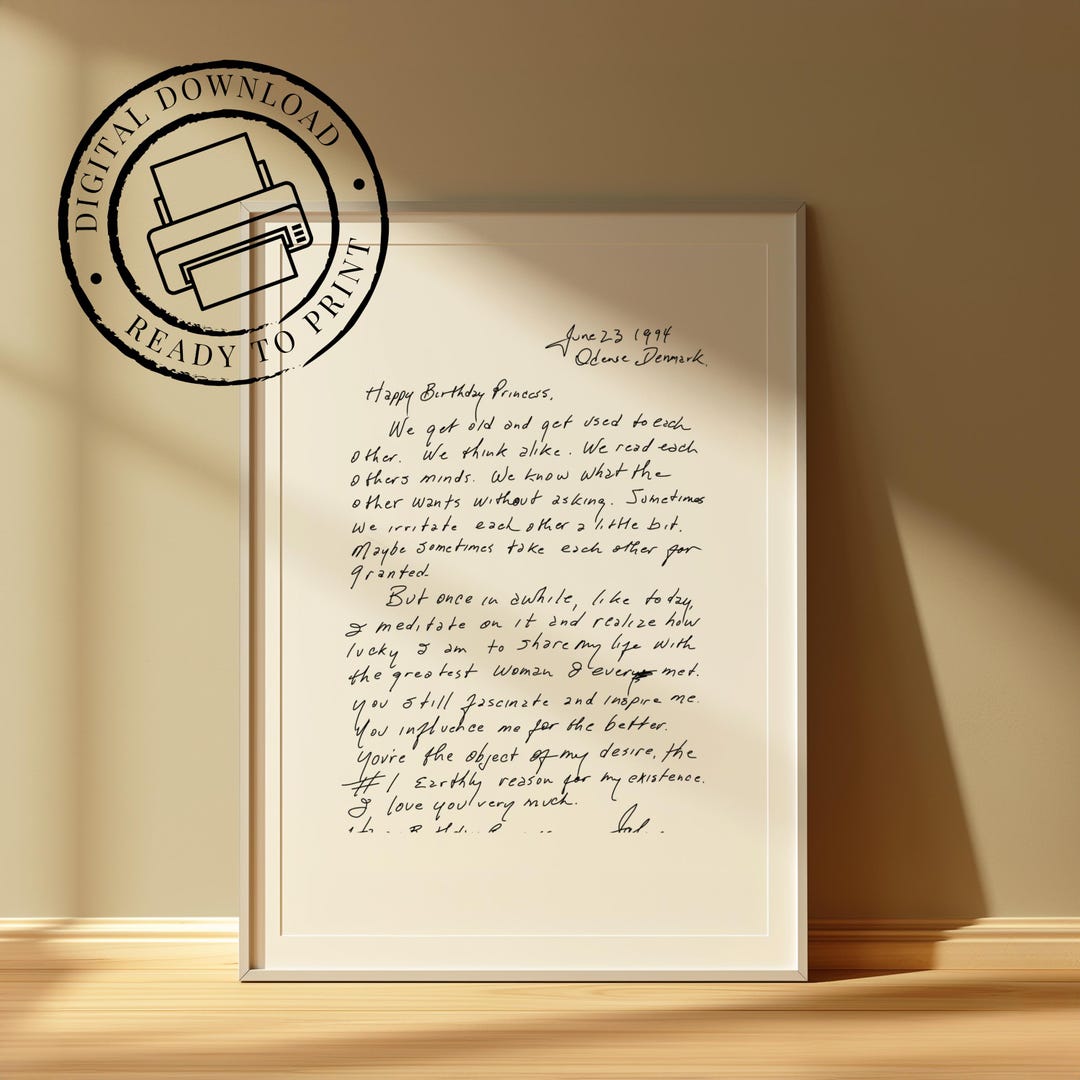 DIGITAL DOWNLOAD
READY TO PRINT
June 23 1994
Odense Denmark.
Happy Birthday Princess,
We get old and get used to each
other. We think alike. We read each
others minds. We know what the
other wants without asking. Sometimes
we irritate each other a little bit.
Maybe sometimes take each other for
granted.
But once in awhile, like today,
I meditate on it and realize how
lucky I am to share my life with
the greatest woman I ever met.
You still fascinate and inspire me.
You influence me for the better.
You're the object of my desire, the
#1 Earthly reason for my existence.
I love you very much.